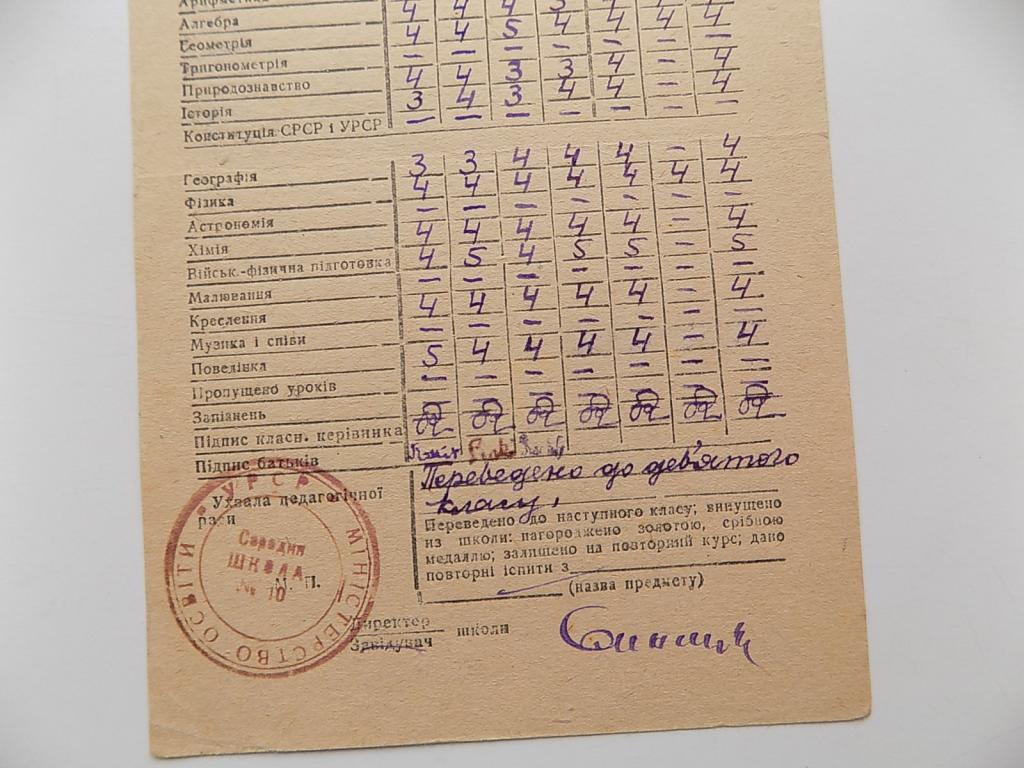 4 4 4 3 4 4 4
Алгебра 4 4 5 4 4 4 4
Геометрія — — — — — — —
Тригонометрія
Природознавство 4 4 3 3 4 — 4
Історія 3 4 3 4 4 — 4
Конституція СРСР і УРСР — — — — — — —
Географія 3 3 4 4 4 — 4
Фізика 4 4 4 4 4 4 4
Астрономія — — — — — — —
Хімія 4 4 4 4 4 — 4
Військ.-фізична підготовка 4 5 4 5 5 — 5
Малювання — — — — — — —
Креслення 4 4 4 4 4 — 4
Музика і співи — — — — — — —
Поведінка 5 4 4 4 4 — 4
Пропущено уроків — — — — — — —
Запізнень
Підпис класн. керівника
Підпис батьків
Ухвала педагогічної
ради
Переведено до дев'ятого
класу.
Переведено до наступного класу; випущено
из школи: нагороджено золотою, срібною
медаллю; залишено на повторний курс; дано
повторні іспити з
(назва предмету)
УРСР
МІНІСТЕРСТВО ОСВІТИ
Середня
ШКОЛА
№ 10
М. П.
Директор
Завідувач
школи